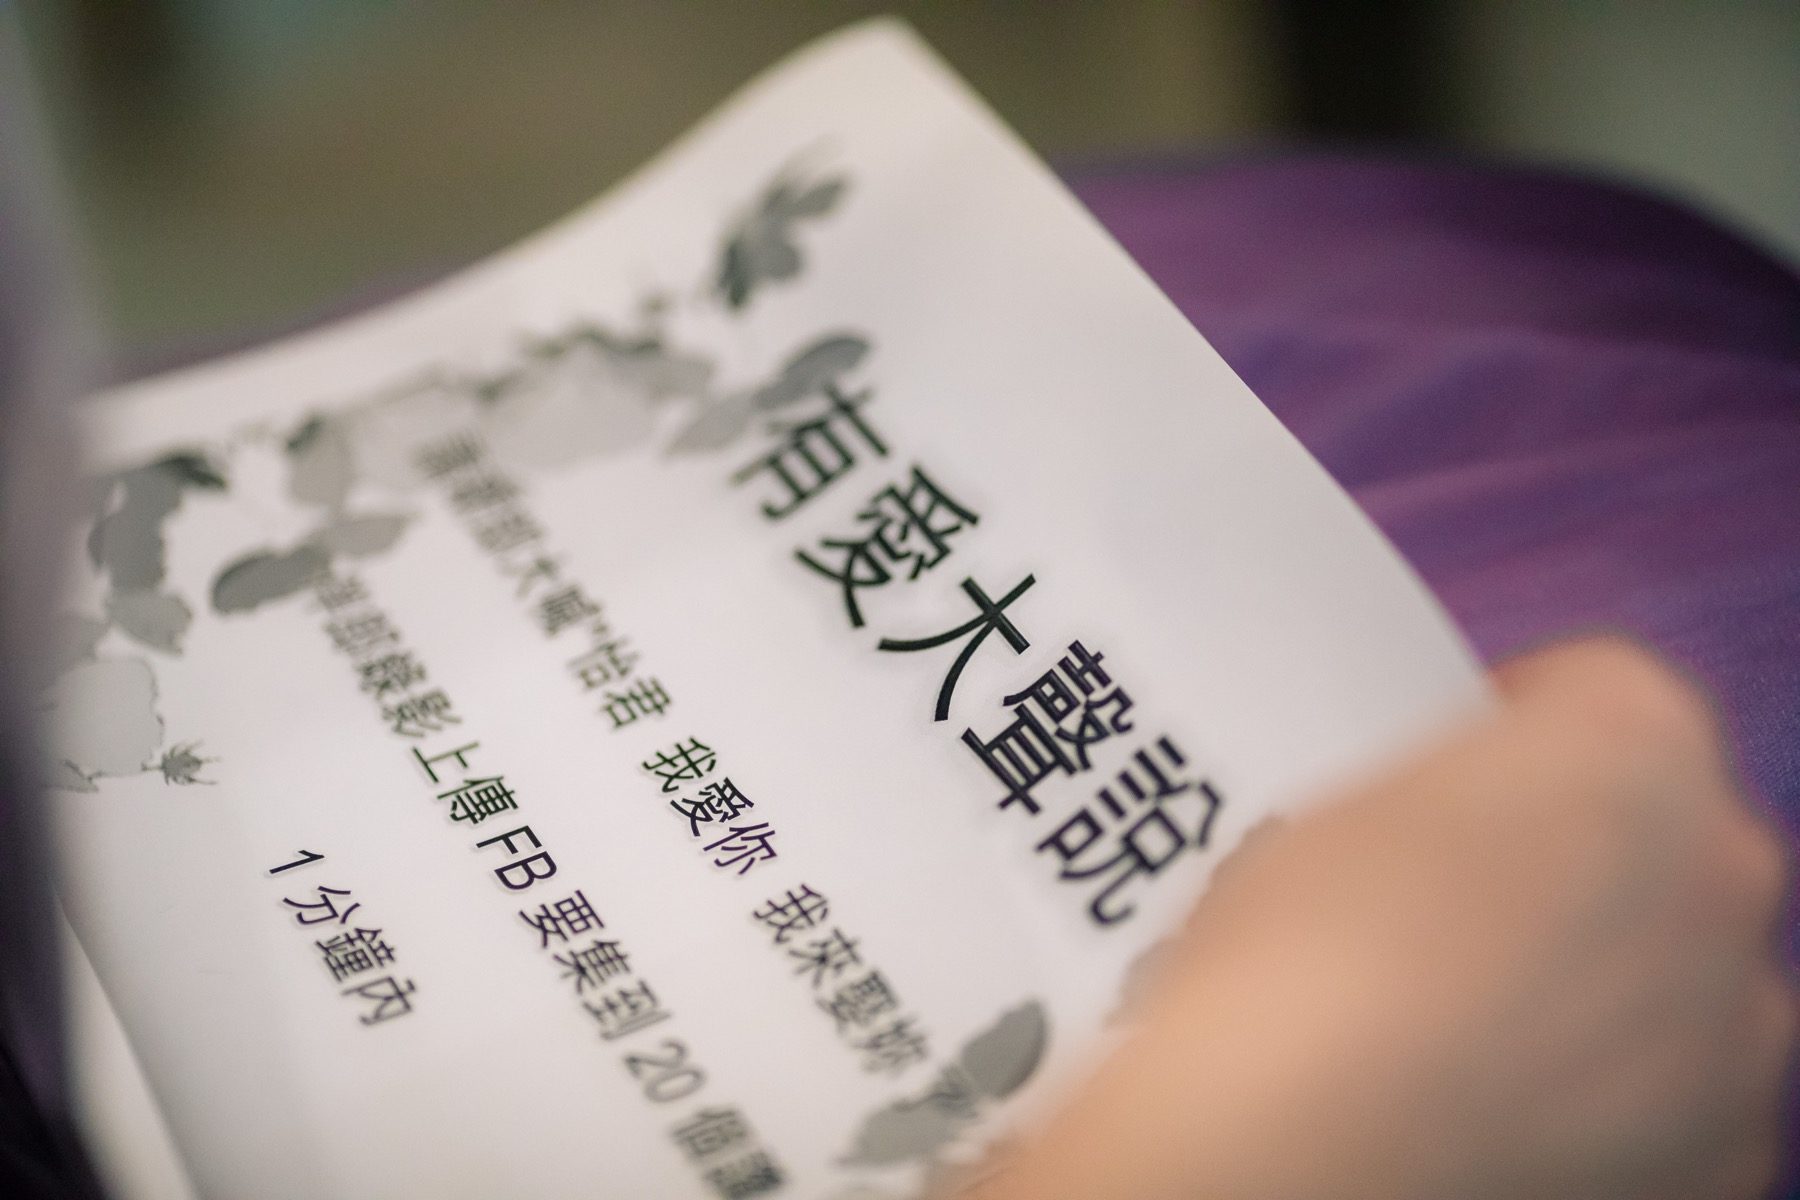 有愛大聲說
新郎大喊"怡君 我愛你 我來娶妳
全程錄影上傳 FB 要集到 20 個讚
1 分鐘內